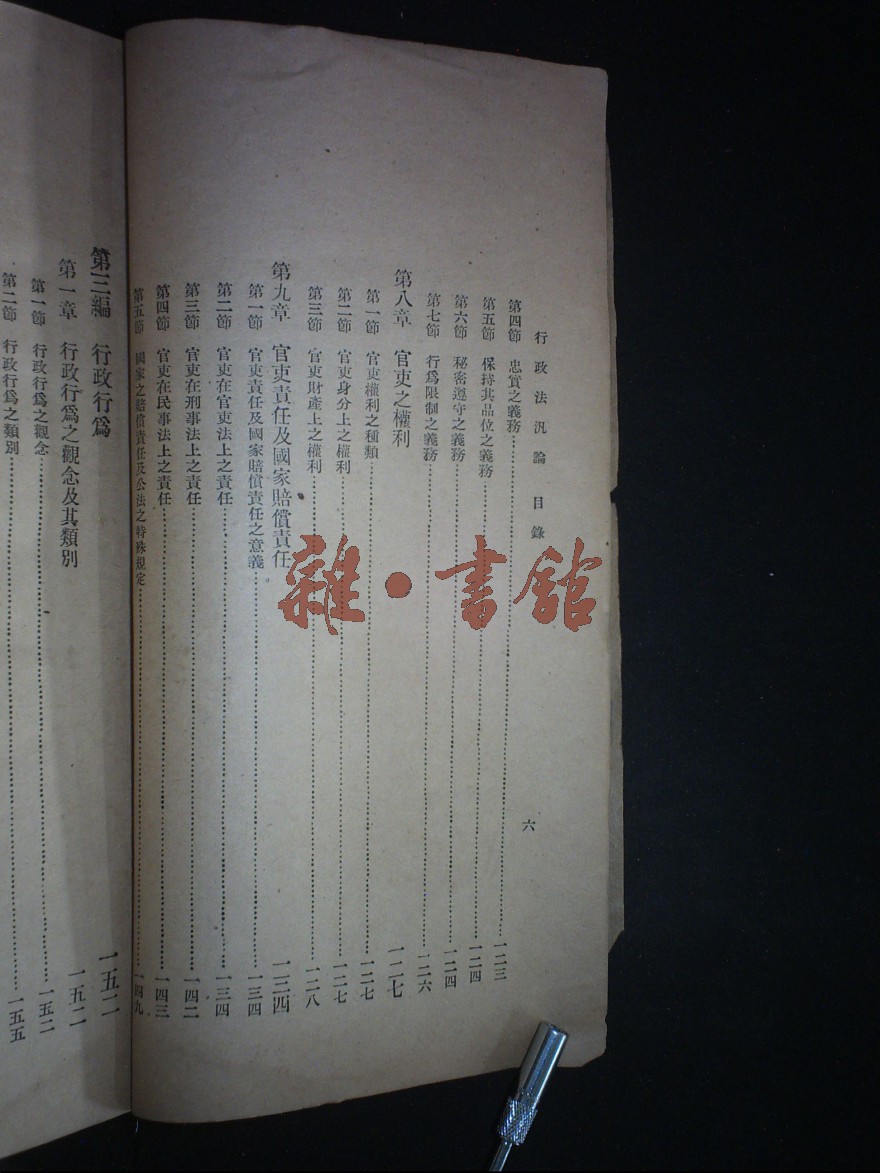 行政法汎論 目錄 六
第四節 忠實之義務……一二三
第五節 保持其品位之義務……一二四
第六節 秘密遵守之義務……一二四
第七節 行爲限制之義務……一二六
第八章 官吏之權利 一二七
第一節 官吏權利之種類……一二七
第二節 官吏身分上之權利……一二七
第三節 官吏財產上之權利……一二八
第九章 官吏責任及國家賠償責任 一三四
第一節 官吏責任及國家賠償責任之意義……一三四
第二節 官吏在官吏法上之責任……一三四
第三節 官吏在刑事法上之責任……一四二
第四節 官吏在民事法上之責任……一四三
第五節 國家之賠償責任及公法之特殊規定……一四九
第三編 行政行爲 一五二
第一章 行政行爲之觀念及其類別 一五二
第一節 行政行爲之觀念……一五二
第二節 行政行爲之類別……一五五
雜·書館